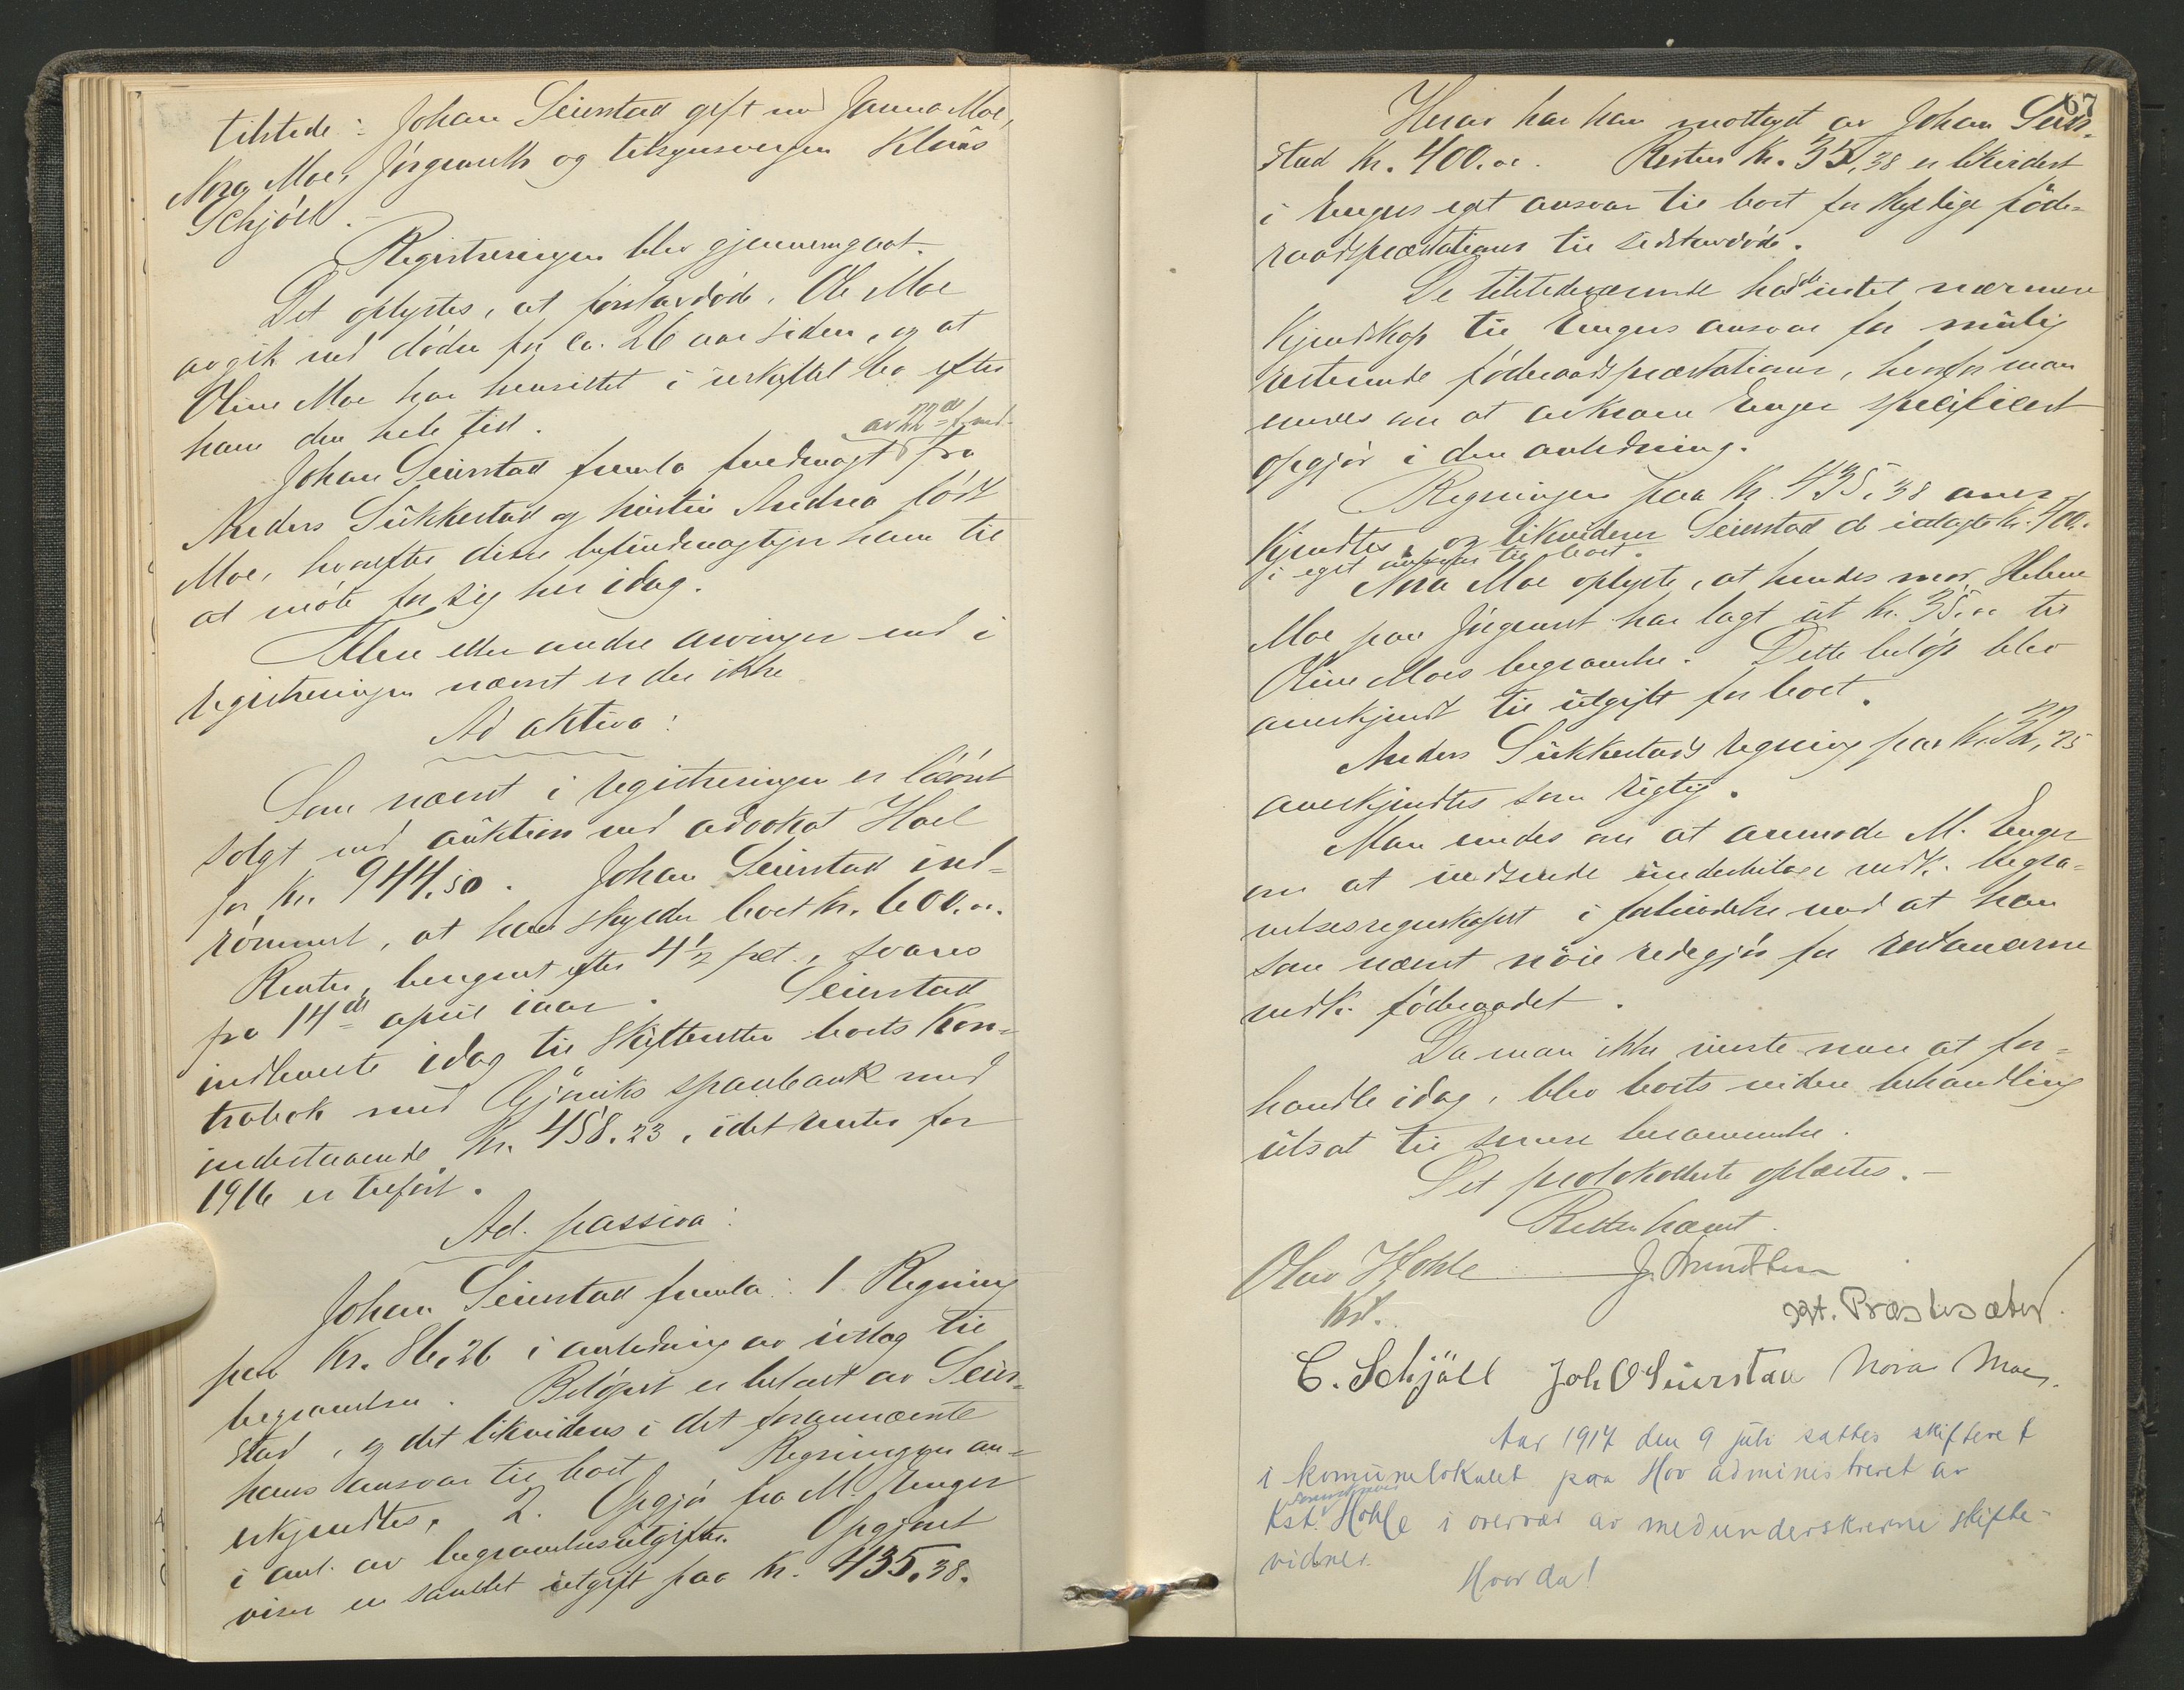 tilstede: Johan Seierstad gift med Janna Moe,
Nora Moe, Jørgsvulh og tilsynsvergen Klaus
Schjöll.
Registreringen blev gjennemgaat.
Det oplystes, at førstavdøde, Ole Moe
avgik ved døden for ca. 26 aar siden, og at
Oline Moe har hensittet i uskiftet bo efter
ham den hele tid.
av 22de f. md.
Johan Seierstad fremla fuldmagt fra
Anders Sukkestad og hustru Andrea født
Moe, hvorefter disse befuldmægtiger ham til
at møte for sig her idag.
Flere eller andre arvinger end i
registreringen nævnt er der ikke
Ad aktiva:
Som nævnt i registreringen er løsøret
solgt ved auktion ved advokat Hoel
for Kr. 944.50. Johan Seierstad ind-
rømmet, at han skylder boet Kr. 600.00.
Renter, beregnet efter 4½ pct., svares
fra 14de april iaar. Seierstad
indleverte idag til skifteretten boets Kon-
trabok med Gjøviks sparebank med
indestaaende Kr. 458.23, idet renter for
1916 er tilført.
Ad. passiva:
Johan Seierstad fremla: 1. Regning
paa Kr. 86.26 i anledning av utlæg til
begravelsen. Beløpet er betalt av Seier-
stad, og det likvideres i det forannævnte
hans ansvar til boet Regningen an-
erkjendtes. 2. Opgjør fra M. Enger
i anl. av begravelsesutgifter. Opgjøret
viser en samlet utgift paa Kr. 435.38.
67
Herav har han mottaget av Johan Seier-
stad Kr. 400.00. Resten Kr. 35,38 er likvidert
i Engers eget ansvar til boet for skyldige føde-
raadspræstationer til sidstavdøde.
De tilstedeværende hadde intet nærmere
Kjendskap til Engers ansvar for mulig
resterende føderaadspræstationer, hvorfor man
enedes om at avkræve Enger specificert
opgjør i den anledning.
Regningen paa Kr. 435.38 aner-
kjendtes, og likviderer Seierstad de utlagte Kr. 400.
i eget ansvar til boet.
Nora Moe oplyste, at hendes mor, Helene
Moe paa har lagt ut Kr. 35.00 til
Oline Moes begravelse. Dette beløp blev
anerkjendt til utgift for boet.
Anders Sukkestads regning paa Kr. 32,25
anerkjendtes som rigtig.
Man enedes om at anmode M. Enger
om at indsende underbilage vedk. begra-
velsesregnskapet i forbindelse med at han
som nævnt nøie redegjør for restancerne
vedk. føderaadet.
Da man ikke visste mere at for-
handle idag, blev boets videre behandling
utsat til senere berammelse.
Det protokollerte oplæstes.-
Retten hævet.
Olav Hohle J. Amundsen
Kst.
Præstesæter.
C. Schjöll Joh O Seierstad Nora Moe.
Aar 1917 den 9 juli sattes skifteret
i komunelokalet paa Hov administreret av
sorenskriver
Kst. Hohle i overvær av medunderskrevne skifte-
vidner.
Hvorda!